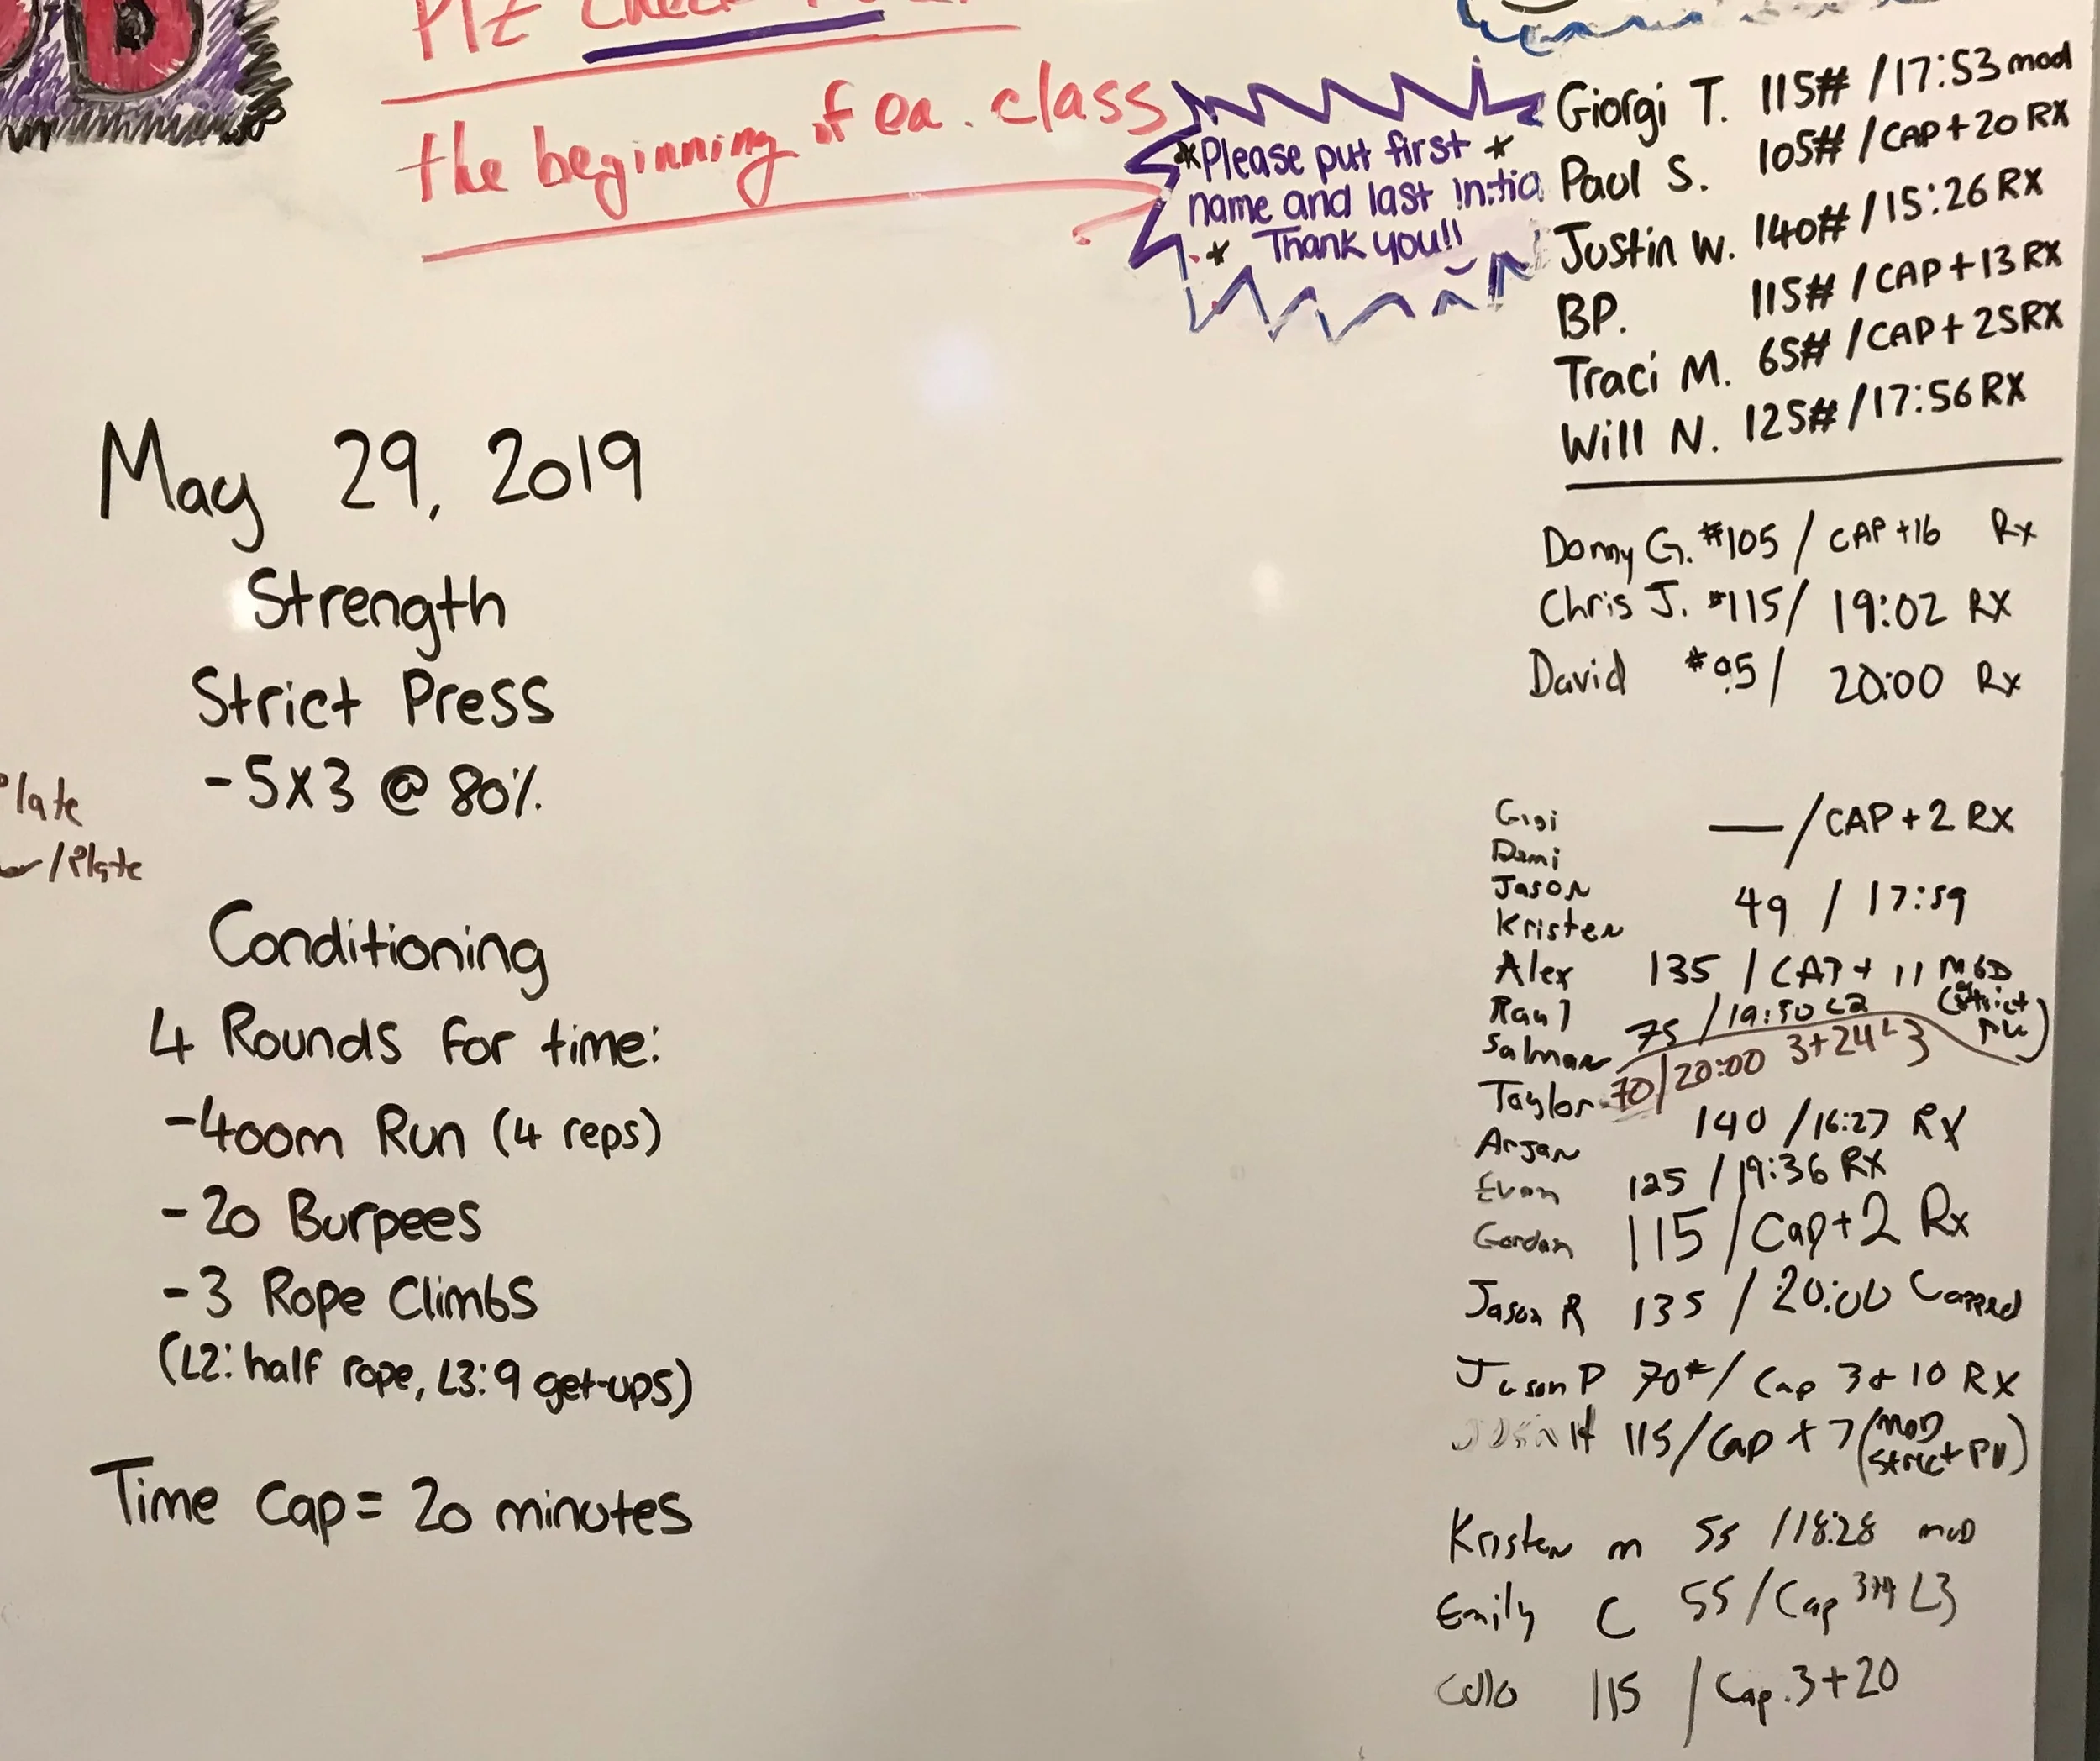 Plz
the beginning of ea. class
*Please put first *
name and last initia
* Thank you!!
May 29, 2019
Strength
Strict Press
-5x3 @ 80%
Plate
/Plate
Conditioning
4 Rounds for time:
-400m Run (4 reps)
-20 Burpees
-3 Rope Climbs
(L2: half rope, L3: 9 get-ups)
Time Cap = 20 minutes
Giorgi T. 115# /17:53 mod
Paul S. 105# /CAP+20 RX
Justin W. 140# /15:26 RX
BP. 115# /CAP+13 RX
Traci M. 65# /CAP+25RX
Will N. 125# /17:56 RX
Donny G. #105 / CAP +16 Rx
Chris J. #115/ 19:02 RX
David #95/ 20:00 Rx
Gigi — /CAP+2 RX
Demi
Jason 49 / 17:59
Kristen
Alex 135 / CAP + 11 MOD
(strict PU)
Raul 75 /19:50 L2
Salman
70/20:00 3+24 L3
Taylor 140 /16:27 RX
Arjan
Evan 125 /19:36 RX
Gordan 115 /Cap+2 Rx
Jason R 135 / 20:00 Capped
Jason P 70# / Cap 3+10 RX
H 115/Cap + 7 (MOD
Strict PU)
Kristen m 55 /18:28 mod
Emily C 55 /Cap L3
115 / Cap.3+20